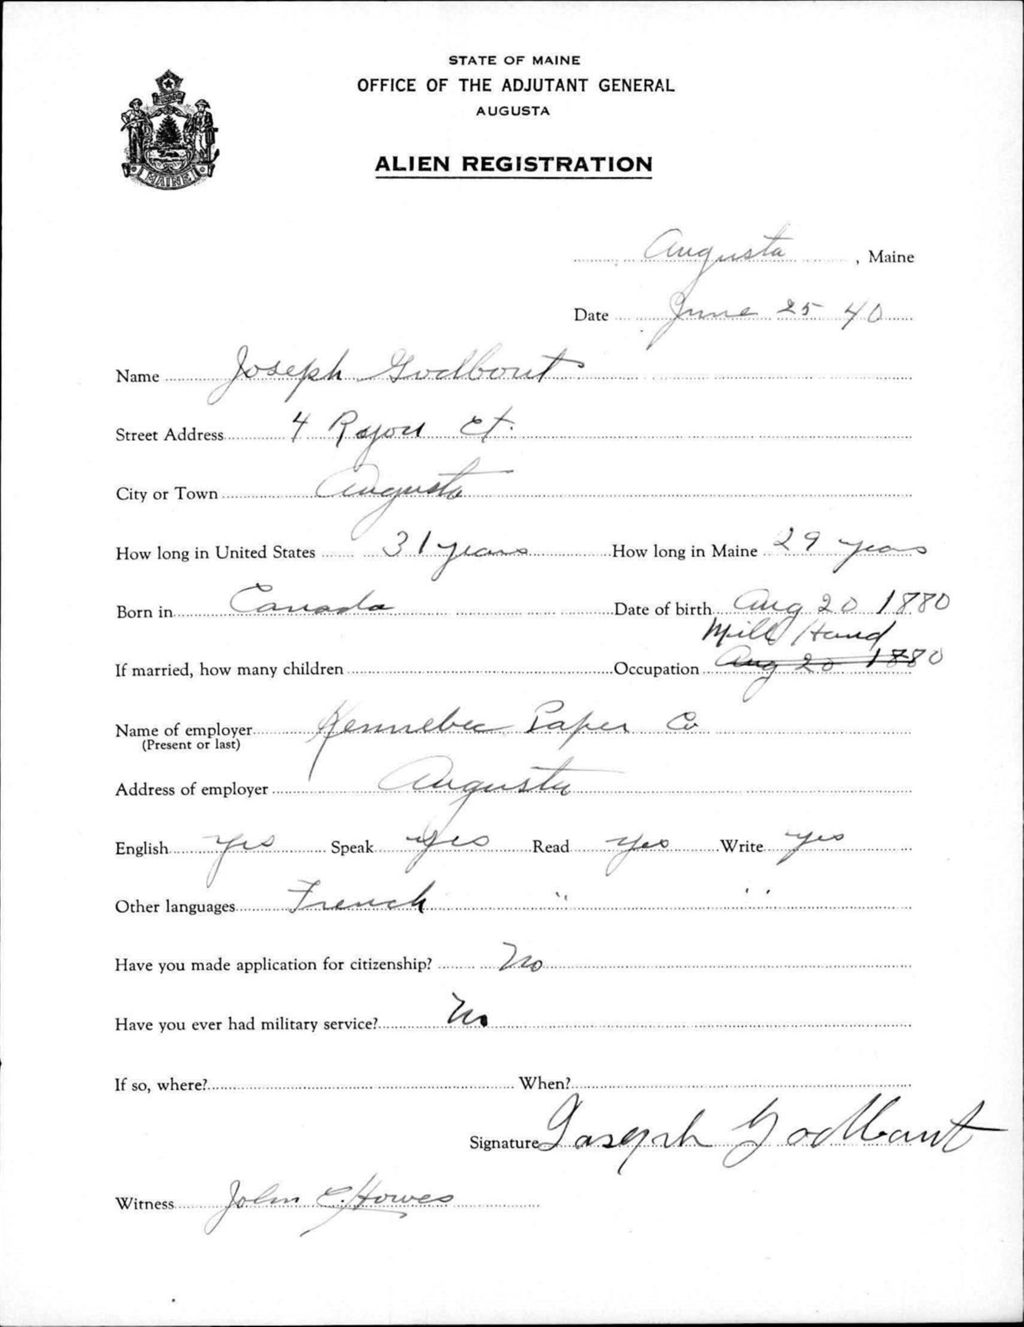 STATE OF MAINE
OFFICE OF THE ADJUTANT GENERAL
AUGUSTA
ALIEN REGISTRATION
MAINE
Augusta, Maine
Date June 25 40
Name Joseph Godbout
Street Address 4 Ct.
City or Town Augusta
How long in United States 31 years How long in Maine 29 years
Born in Canada Date of birth Aug 20 1880
Mill Hand
If married, how many children Occupation Aug 20 1880
Name of employer Kennebec Paper Co
(Present or last)
Address of employer Augusta
English yes Speak yes Read yes Write yes
Other languages French " "
Have you made application for citizenship? No
Have you ever had military service? No
If so, where? When?
Signature Joseph Godbout
Witness John E. Howes